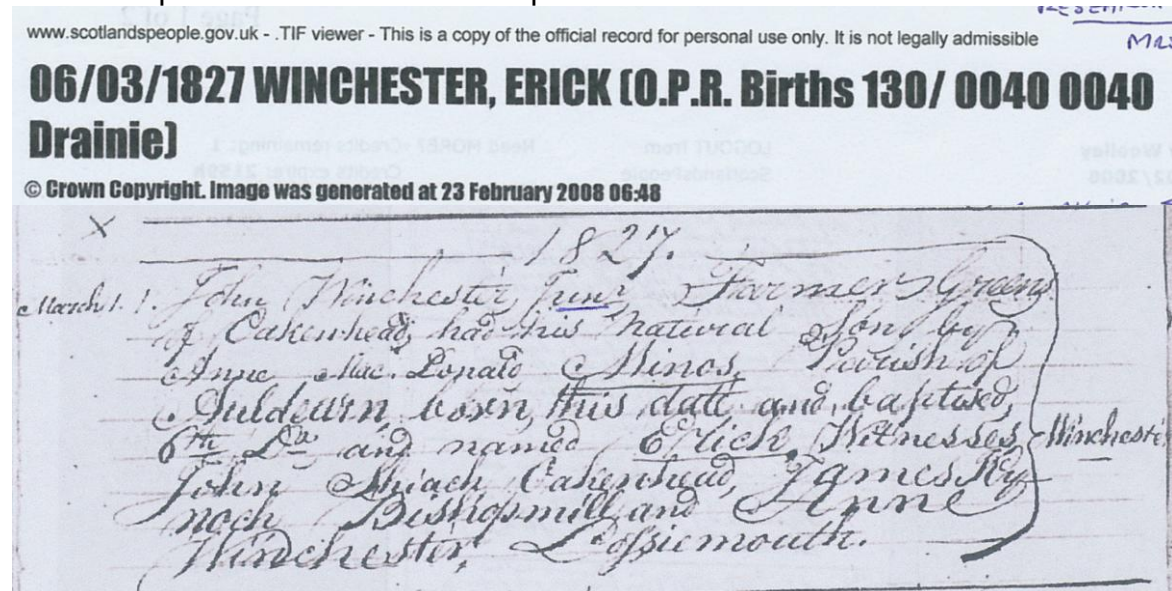 www.scotlandspeople.gov.uk - .TIF viewer - This is a copy of the official record for personal use only. It is not legally admissible
06/03/1827 WINCHESTER, ERICK (O.P.R. Births 130/ 0040 0040
Drainie)
© Crown Copyright. Image was generated at 23 February 2008 06:48
X
1827.
March 1. John Winchester Junr. Farmer Greens
of Cakenhead, had his Natural Son by
Anne Mac. Donald Minos, Parish of
Auldearn, born, this date and, baptised,
6th Do. and named Erick, Witnesses, Winchester
John Shiach Cakenhead, James Ky-
noch Bishopmill, and Anne
Winchester, Lossiemouth.